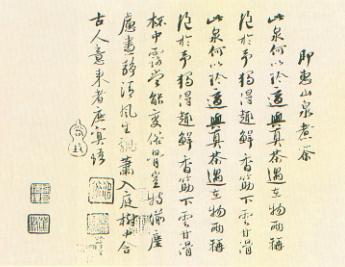 即惠山泉煮茶
此泉何以珍適與真茶遇在物兩稱
絕於予獨得趣鮮香筯下雲甘滑
此泉何以珍適與真茶遇在物兩稱
絕於予獨得趣鮮香筯下雲甘滑
杯中露當能變俗骨豈特湔塵
慮晝靜清風生飄蕭入庭樹中含
古人意來者庶冥悟